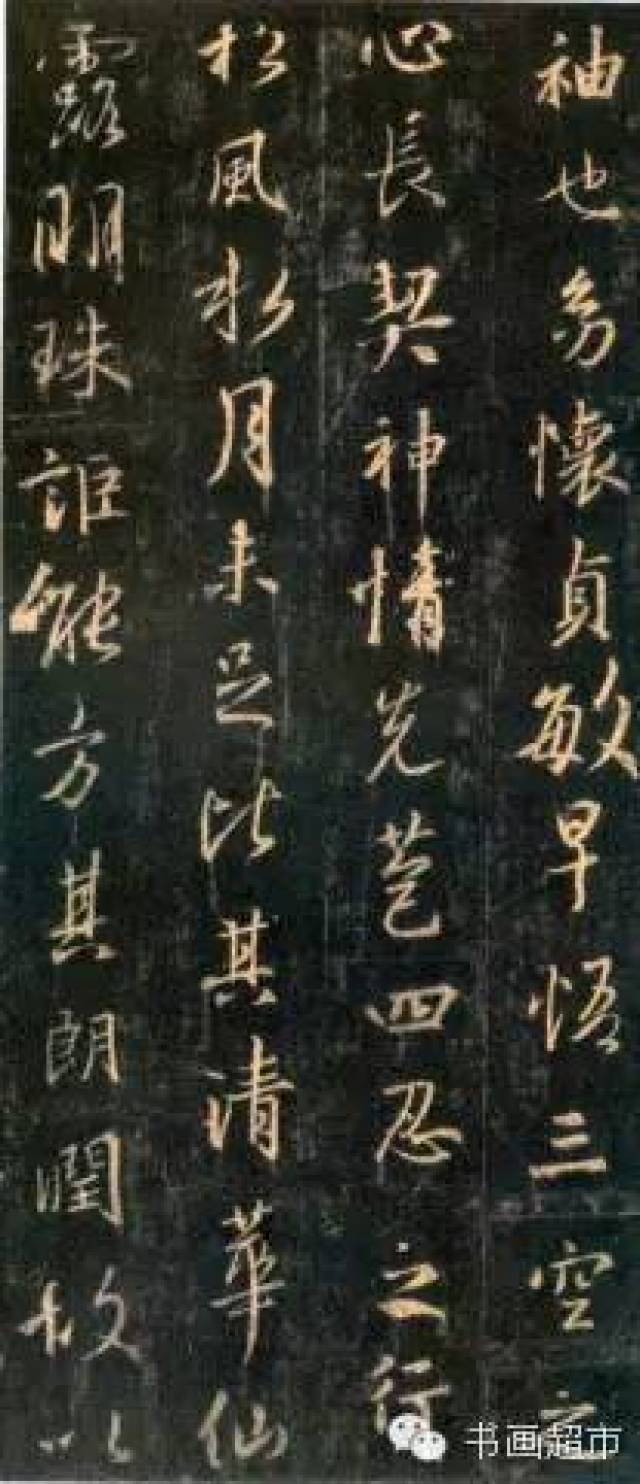 袖也幼懷貞敏早悟三空之
心長契神情先苞四忍之行
松風水月未足比其清華仙
露明珠詎能方其朗潤故以
书画超市